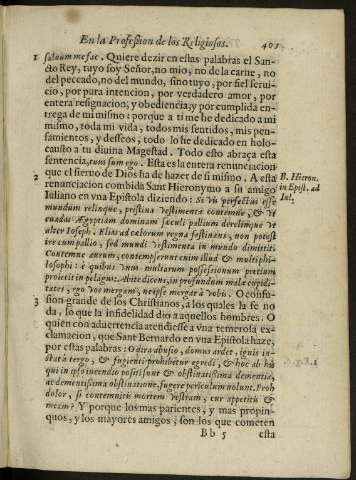 En la Profession de los Religiosos. 401
1 saluum me fac. Quiere dezir en estas palabras el San-
cto Rey, tuyo soy Señor, no mio, no de la carne, no
del peccado, no del mundo, sino tuyo, por fiel serui-
cio, por pura intencion, por verdadero amor, por
entera resignacion, y obediencia; y por cumplida en-
trega de mi mismo: porque a ti me he dedicado a mi
mismo, toda mi vida, todos mis sentidos, mis pen-
samientos, y desseos, todo lo he dedicado en holo-
causto a tu diuina Magestad. Todo esto abraça esta
sentencia, tuus sum ego. Esta es la entera renunciacion
que el sieruo de Dios ha de hazer de si mismo. A esta
2 renunciacion combida Sant Hieronymo a su amigo
Iuliano en vna Epistola diziendo: Si vis perfectus esse
mundum relinque, pristina vestimenta contemne, & vt
euadas Ægyptiam dominam sæculi pallium derelinque vt
alter Ioseph. Elias ad cælorum regna festinans, non potest
ire cum pallio, sed mundi vestimenta in mundo dimittit.
Contemne aurum, contempserunt enim illud & multi phi-
losophi: è quibus vnus multarum possessionum pretium
proiecit in pelagus: Abite dicens, in profundum malæ cupidi-
tates, ego vos mergam, ne ipse mergar à vobis. O confu-
3 sion grande de los Christianos, a los quales la fe no
da, lo que la infidelidad dio a aquellos hombres. O
quien con aduertencia atendiesse a vna temerosa ex-
clamacion, que Sant Bernardo en vna Epistola haze,
por estas palabras: O dira abusio, domus ardet, ignis in-
stat à tergo, & fugienti prohibetur egredi, & hoc ab his
qui in ipso incendio positi sunt & obstinatissima dementia,
ac dementissima obstinatione, fugere periculum nolunt. Proh
dolor, si contemnitis mortem vestram, cur appetitis &
meam? Y porque los mas parientes, y mas propin-
quos, y los mayores amigos, son los que cometen
Bb 5 esta
B. Hieron.
in Epist. ad
Iul.